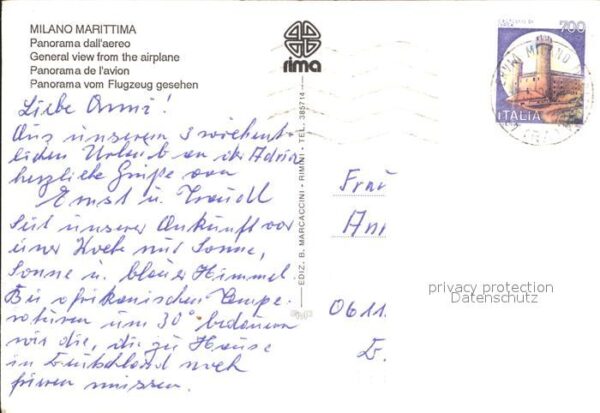 MILANO MARITTIMA
Panorama dall'aereo
General view from the airplane
Panorama de l'avion
Panorama vom Flugzeug gesehen
rima
700
ITALIA
Liebe Anni!
Aus unserem 3 wöchent-
lichen Urlaub an der Adria
herzliche Grüße von
Ernst u. Traudl
Seit unserer Ankunft vor
einer Woche nur Sonne,
Sonne u. blauer Himmel.
Bei afrikanischen Tempe-
raturen um 30° bedauern
wir die, die zu Hause
in Deutschland noch
frieren müssen.
EDIZ. B. MARCACCINI - RIMINI - TEL. 385714
Frau
Ann
0611
privacy protection
Datenschutz